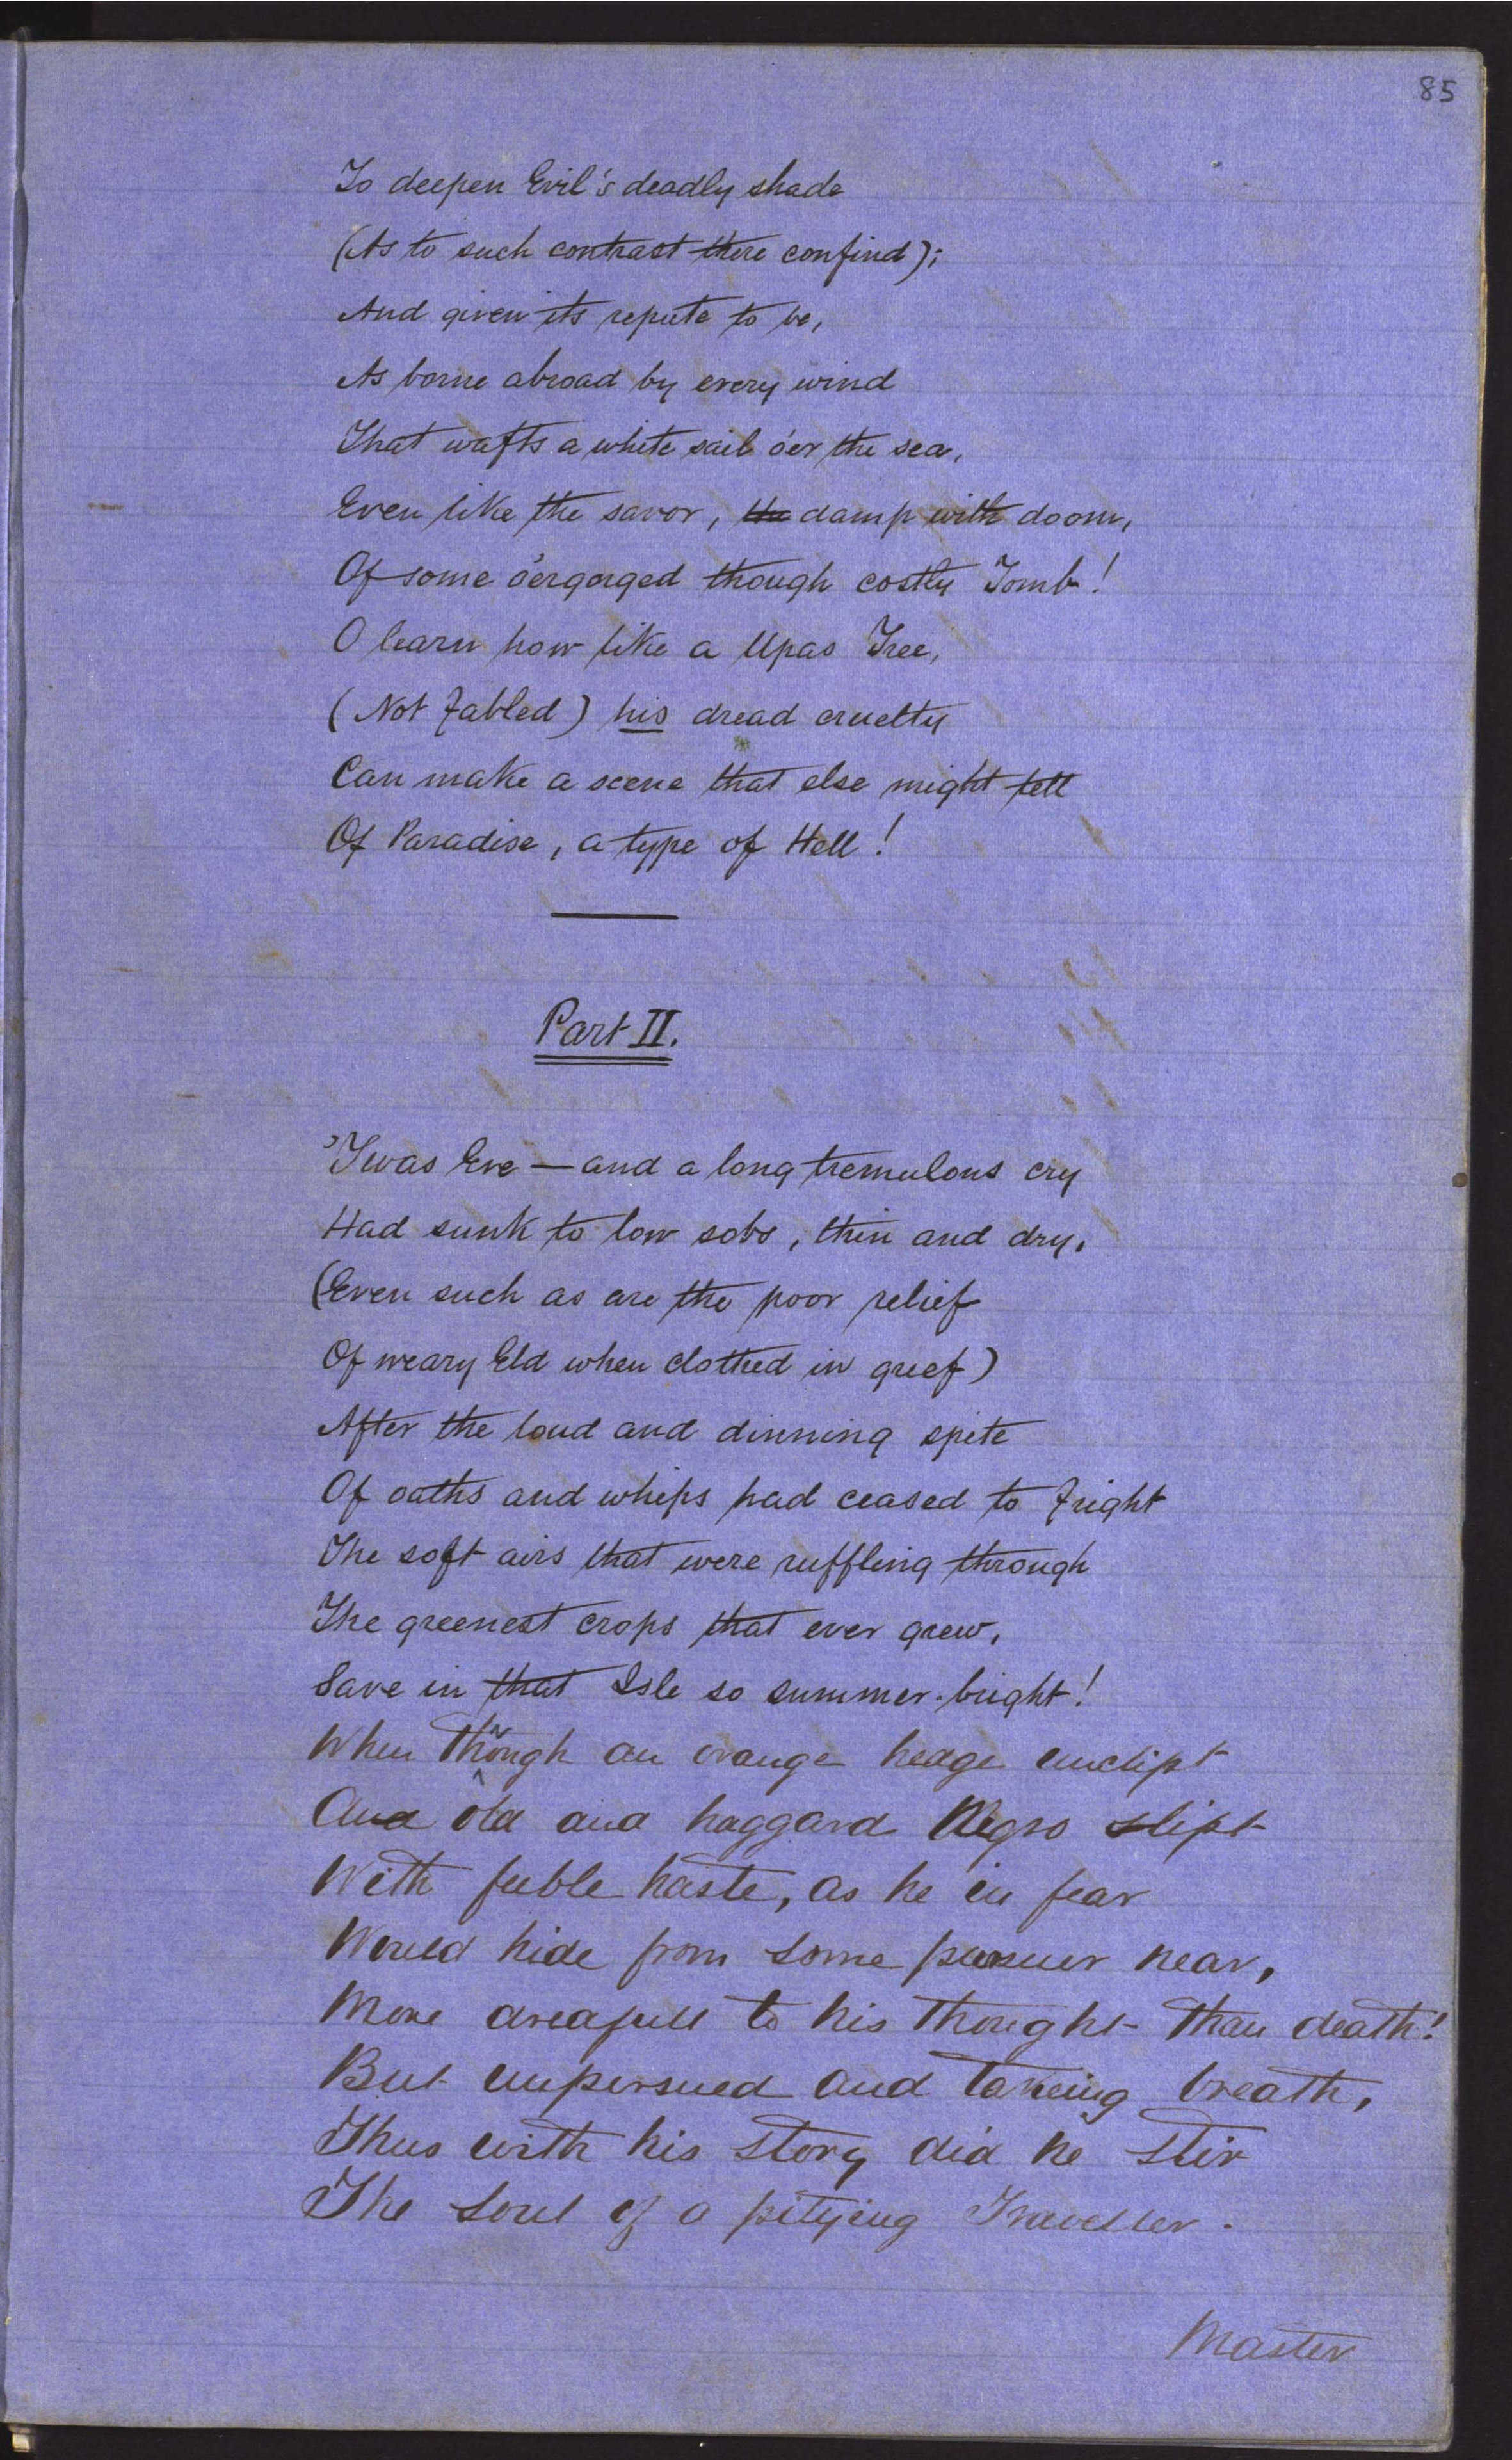 85
To deepen Evil's deadly shade
(As to such contrast there confind);
And given its repute to be,
As borne abroad by every wind
That wafts a white sail o'er the sea,
Even like the savor, the damp with doom,
Of some o'ergorged though costly Tomb!
O learn how like a Upas Tree,
(Not fabled) his dread cruelty
Can make a scene that else might tell
Of Paradise, a type of Hell!
Part II.
'Twas Eve — and a long tremulous cry
Had sunk to low sobs, thin and dry,
(Even such as are the poor relief
Of weary Eld when clothed in grief)
After the loud and dinning spite
Of oaths and whips had ceased to fright
The soft airs that were ruffling through
The greenest crops that ever grew,
Save in that Isle so summer-bright!
When through an orange hedge unclipt
And old and haggard Negro slipt
With feeble haste, as he in fear
Would hide from some pursuer near,
More dreadfull to his thought than death!
But unpersued and takeing breath,
Thus with his story did he stir
The Soul of a pitying Traveller.
Master